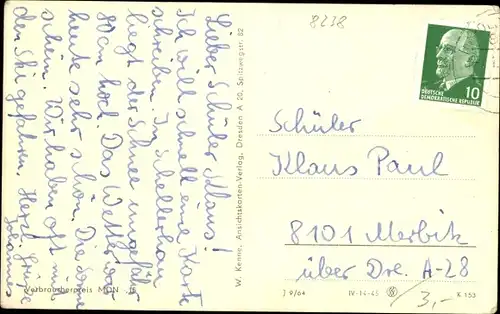 Lieber Schüler Klaus!
Ich will schnell eine Karte
schreiben. In Schellerhau
liegt der Schnee ungefähr
80cm hoch. Das Wetter war
heute sehr schön. Die Sonne
schein. Wir haben oft mit
den Ski gefahren. Herzl. Grüße
Johannes
Verbraucherpreis MDN
W. Kenne, Ansichtskarten-Verlag, Dresden A 20, Spitzwegstr. 82
8238
DEUTSCHE
DEMOKRATISCHE REPUBLIK
10
Schüler
Klaus Paul
8101 Merbitz
über Dre. A-28
J 9/64 IV-14-45 K 153
3,-